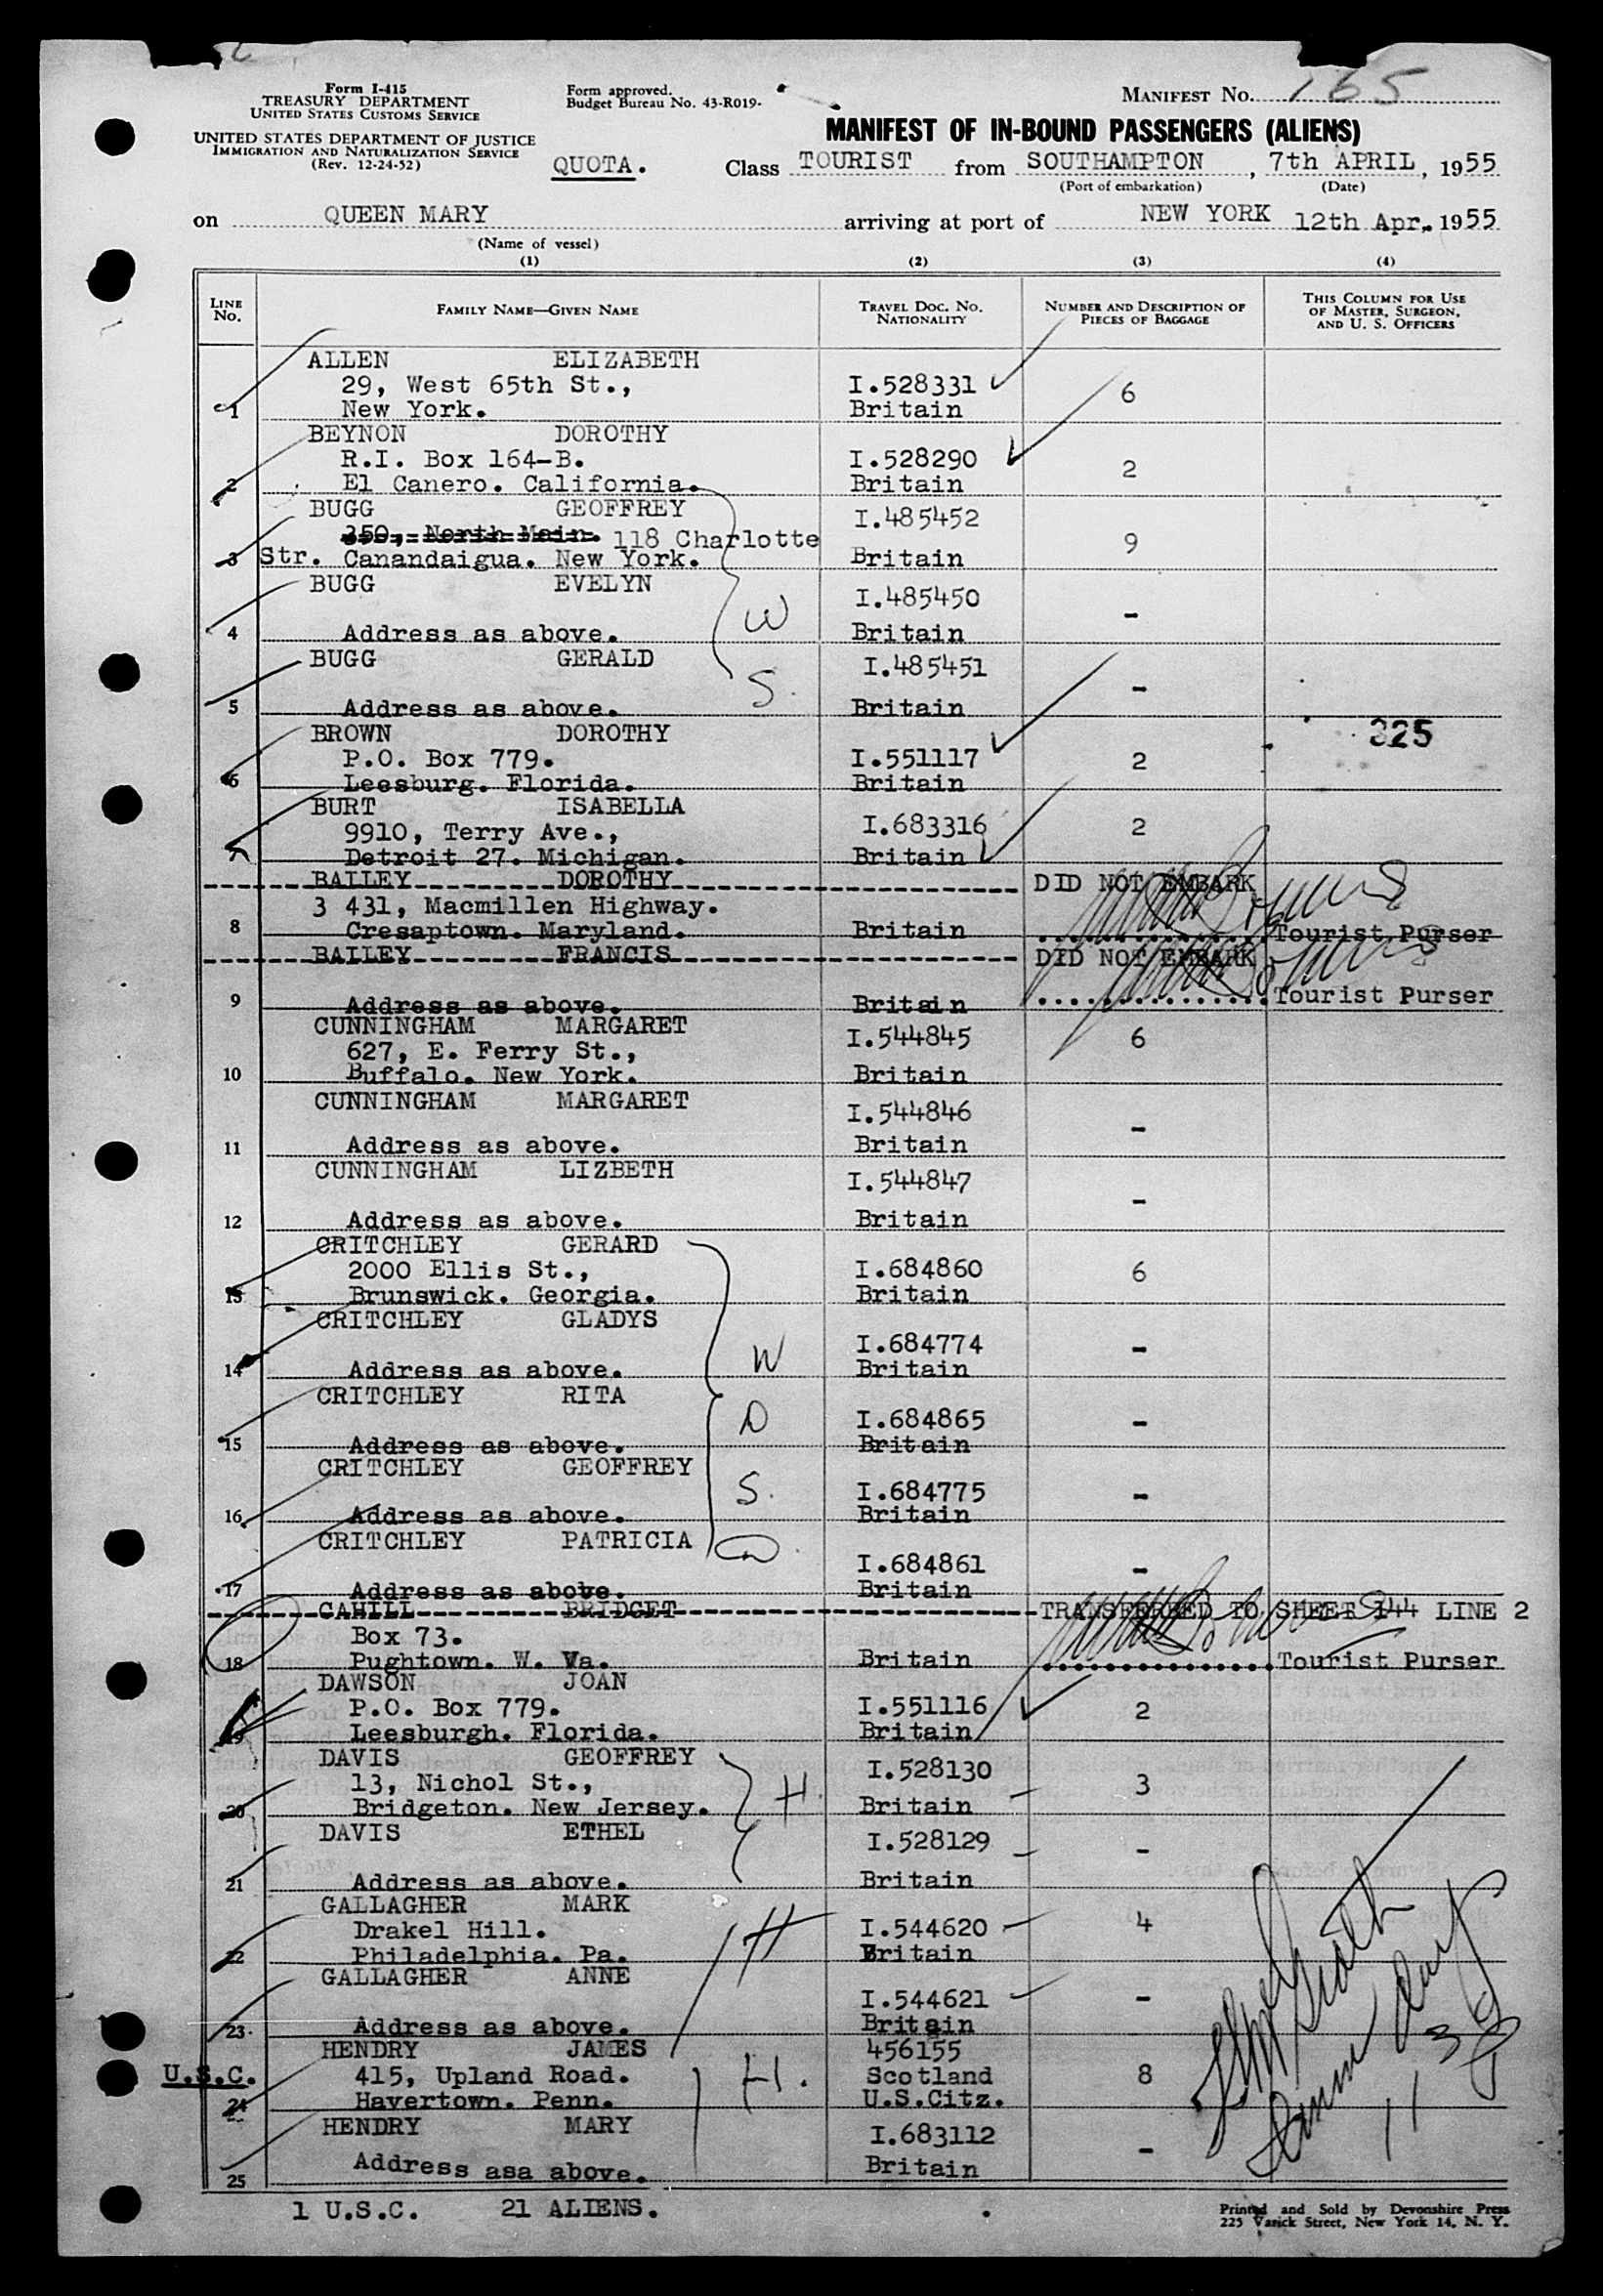 Form I-415
TREASURY DEPARTMENT
UNITED STATES CUSTOMS SERVICE
UNITED STATES DEPARTMENT OF JUSTICE
IMMIGRATION AND NATURALIZATION SERVICE
(Rev. 12-24-52)
Form approved.
Budget Bureau No. 43-R019-
MANIFEST NO. 165
MANIFEST OF IN-BOUND PASSENGERS (ALIENS)
QUOTA. Class TOURIST from SOUTHAMPTON, 7th APRIL, 1955
(Port of embarkation) (Date)
on QUEEN MARY arriving at port of NEW YORK 12th Apr. 1955
(Name of vessel)
(1) (2) (3) (4)
LINE NO. FAMILY NAME—GIVEN NAME TRAVEL DOC. NO. NATIONALITY NUMBER AND DESCRIPTION OF PIECES OF BAGGAGE THIS COLUMN FOR USE OF MASTER, SURGEON, AND U. S. OFFICERS
ALLEN ELIZABETH
29, West 65th St., I.528331 6
1 New York. Britain
BEYNON DOROTHY
R.I. Box 164-B. I.528290 2
2 El Canero. California. Britain
BUGG GEOFFREY I.485452
350, North Main. 118 Charlotte 9
3 Str. Canandaigua. New York. Britain
BUGG EVELYN I.485450
W -
4 Address as above. Britain
BUGG GERALD I.485451
S. -
5 Address as above. Britain
BROWN DOROTHY 325
P.O. Box 779. I.551117 2
6 Leesburg. Florida. Britain
BURT ISABELLA
9910, Terry Ave., I.683316 2
7 Detroit 27. Michigan. Britain
BAILEY DOROTHY DID NOT EMBARK
3 431, Macmillen Highway.
8 Cresaptown. Maryland. Britain Tourist Purser
BAILEY FRANCIS DID NOT EMBARK
9 Address as above. Britain Tourist Purser
CUNNINGHAM MARGARET I.544845 6
627, E. Ferry St.,
10 Buffalo. New York. Britain
CUNNINGHAM MARGARET I.544846
-
11 Address as above. Britain
CUNNINGHAM LIZBETH I.544847
-
12 Address as above. Britain
CRITCHLEY GERARD
2000 Ellis St., I.684860 6
13 Brunswick. Georgia. Britain
CRITCHLEY GLADYS
W I.684774 -
14 Address as above. Britain
CRITCHLEY RITA
D I.684865 -
15 Address as above. Britain
CRITCHLEY GEOFFREY
S. I.684775 -
16 Address as above. Britain
CRITCHLEY PATRICIA D
I.684861 -
17 Address as above. Britain
CAHILL BRIDGET TRANSFERRED TO SHEET 144 LINE 2
Box 73.
18 Pughtown. W. Va. Britain Tourist Purser
DAWSON JOAN
P.O. Box 779. I.551116 2
19 Leesburgh. Florida. Britain
DAVIS GEOFFREY I.528130
13, Nichol St., H. 3
20 Bridgeton. New Jersey. Britain
DAVIS ETHEL I.528129
-
21 Address as above. Britain
GALLAGHER MARK
Drakel Hill. H I.544620 4
22 Philadelphia. Pa. Britain
GALLAGHER ANNE
I.544621 -
23. Address as above. Britain
HENDRY JAMES 456155
U.S.C. 415, Upland Road. H. Scotland 8
24 Havertown. Penn. U.S.Citz.
HENDRY MARY I.683112
-
25 Address asa above. Britain
1 U.S.C. 21 ALIENS.
Printed and Sold by Devonshire Press
225 Varick Street, New York 14, N. Y.